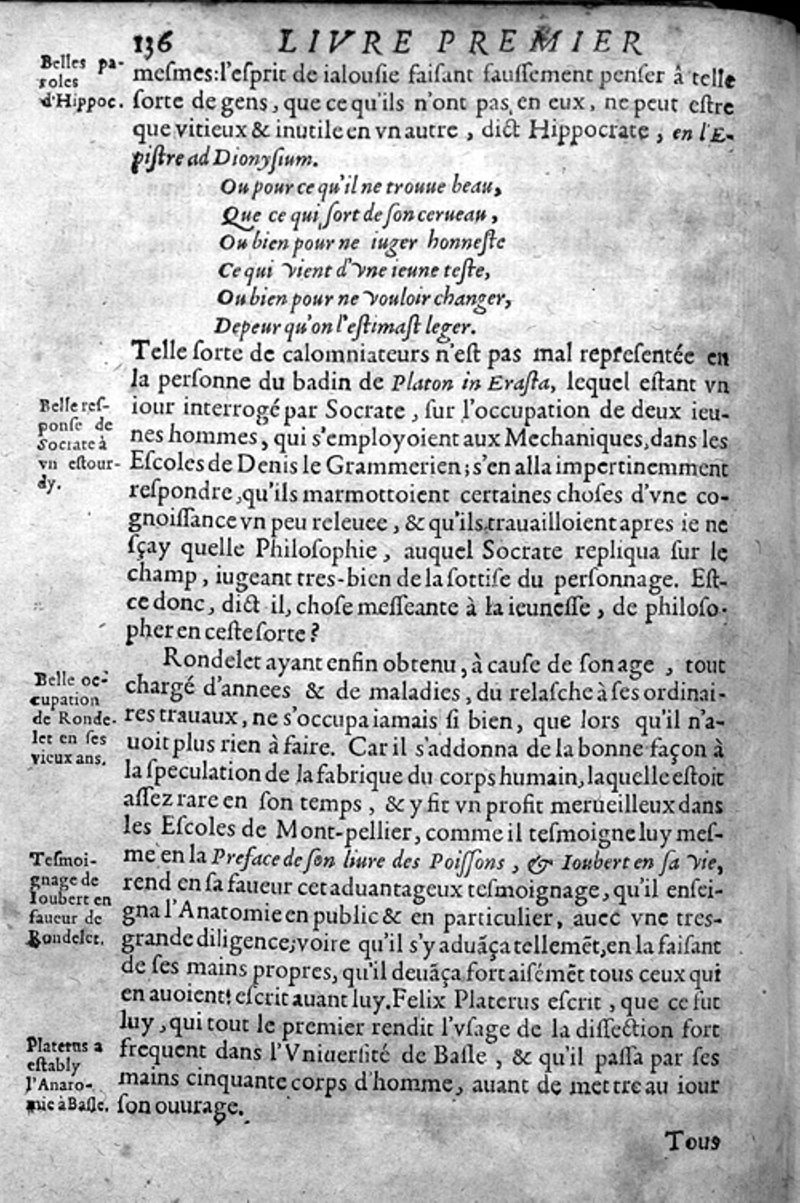 136 LIVRE PREMIER
Belles pa-
roles
d'Hippoc.
mesmes: l'esprit de ialousie faisant faussement penser â telle
sorte de gens, que ce qu'ils n'ont pas en eux, ne peut estre
que vitieux & inutile en vn autre, dict Hippocrate, en l'E-
pistre ad Dionysium.
Ou pour ce qu'il ne trouue beau,
Que ce qui sort de son cerueau,
Ou bien pour ne iuger honneste
Ce qui vient d'vne ieune teste,
Ou bien pour ne vouloir changer,
De peur qu'on l'estimast leger.
Telle sorte de calomniateurs n'est pas mal representée en
la personne du badin de Platon in Erasta, lequel estant vn
Belle res-
ponse de
Socrate à
vn estour-
dy.
iour interrogé par Socrate, sur l'occupation de deux ieu-
nes hommes, qui s'employoient aux Mechaniques, dans les
Escoles de Denis le Grammerien; s'en alla impertinemment
respondre, qu'ils marmottoient certaines choses d'vne co-
gnoissance vn peu releuee, & qu'ils trauailloient apres ie ne
sçay quelle Philosophie, auquel Socrate repliqua sur le
champ, iugeant tres-bien de la sottise du personnage. Est-
ce donc, dict il, chose messeante à la ieunesse, de philoso-
pher en ceste sorte?
Rondelet ayant enfin obtenu, à cause de son age, tout
Belle oc-
cupation
de Ronde-
let en ses
vieux ans.
chargé d'annees & de maladies, du relasche à ses ordinai-
res trauaux, ne s'occupa iamais si bien, que lors qu'il n'a-
uoit plus rien à faire. Car il s'addonna de la bonne façon à
la speculation de la fabrique du corps humain, laquelle estoit
assez rare en son temps, & y fit vn profit merueilleux dans
les Escoles de Mont-pellier, comme il tesmoigne luy mes-
Tesmoi-
gnage de
Ioubert en
faueur de
Rondelet.
me en la Preface de son liure des Poissons, & Ioubert en sa vie,
rend en sa faueur cet aduantageux tesmoignage, qu'il ensei-
gna l'Anatomie en public & en particulier, auec vne tres-
grande diligence; voire qu'il s'y aduãça tellemẽt, en la faisant
de ses mains propres, qu'il deuãça fort aisémẽt tous ceux qui
en auoient escrit auant luy. Felix Platerus escrit, que ce fut
luy, qui tout le premier rendit l'vsage de la dissection fort
Platerus a
estably
l'Anato-
mie à Basle.
frequent dans l'Vniuersité de Basle, & qu'il passa par ses
mains cinquante corps d'homme, auant de mettre au iour
son ouurage.
Tous